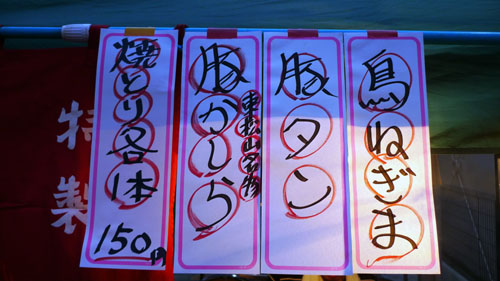 鳥ねぎま
豚タン
豚かしら
東松山名物
焼とり各1本
150円
特製